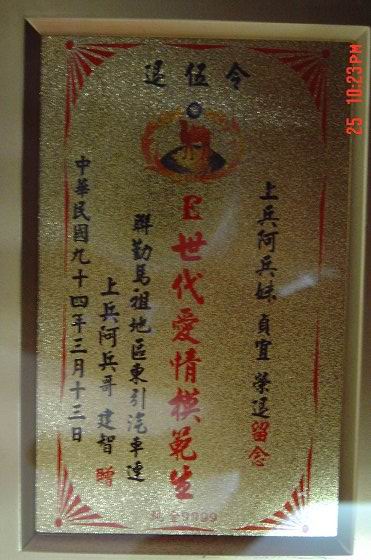 令伍退
上兵阿兵妹 貞宜 榮退留念
E世代愛情模範生
聯勤馬祖地區東引汽車連
上兵阿兵哥 建智 贈
中華民國九十四年三月十三日
純金9999
25 10:23PM